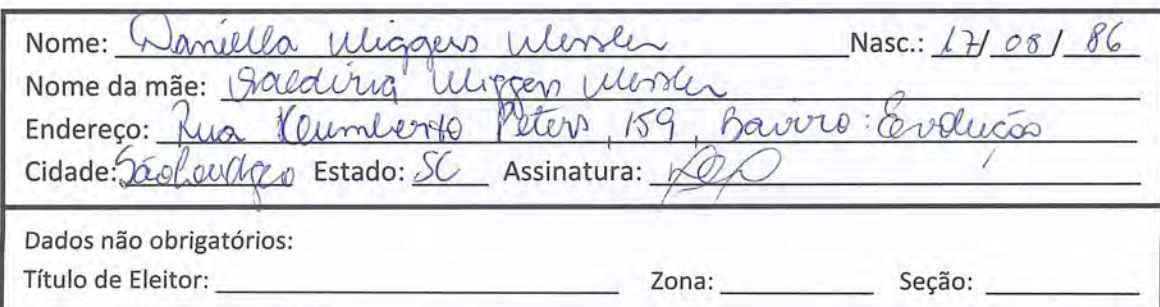 Nome: Daniella Wiggers Nasc.: 17/ 08 / 86
Nome da mãe: Wiggers
Endereço: Rua Humberto Peters, 159, Bairro: Evolução
Cidade: Estado: SC Assinatura:
Dados não obrigatórios:
Título de Eleitor: Zona: Seção: